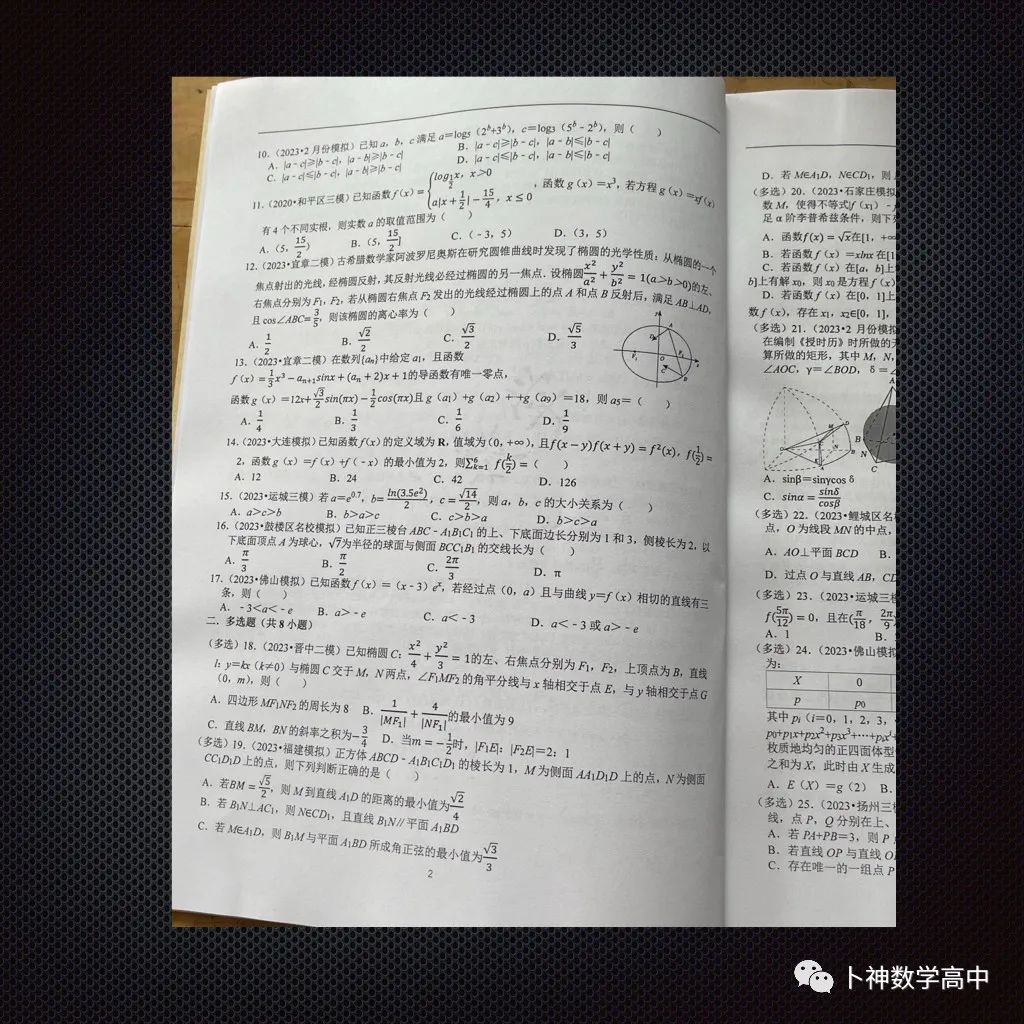 10.（2023•2 月份模拟）已知 a，b，c 满足 a＝log₅（2ᵇ+3ᵇ），c＝log₃（5ᵇ﹣2ᵇ），则（　　）
A．|a﹣c|≥|b﹣c|，|a﹣b|≥|b﹣c|　B．|a﹣c|≥|b﹣c|，|a﹣b|≤|b﹣c|
C．|a﹣c|≤|b﹣c|，|a﹣b|≥|b﹣c|　D．|a﹣c|≤|b﹣c|，|a﹣b|≤|b﹣c|
11.（2020•和平区三模）已知函数 f（x）＝{log_{1/2}x，x＞0
a|x + 1/2| − 15/4，x ≤ 0
，函数 g（x）＝x³，若方程 g（x）＝xf（x）
有 4 个不同实根，则实数 a 的取值范围为（　　）
A．（5，15/2）　B．（5，15/2]　C．（﹣3，5）　D．（3，5）
12.（2023•宜章二模）古希腊数学家阿波罗尼奥斯在研究圆锥曲线时发现了椭圆的光学性质：从椭圆的一个
焦点射出的光线，经椭圆反射，其反射光线必经过椭圆的另一焦点．设椭圆 x²/a² + y²/b² = 1(a＞b＞0)的左、
右焦点分别为 F₁，F₂，若从椭圆右焦点 F₂ 发出的光线经过椭圆上的点 A 和点 B 反射后，满足 AB⊥AD，
且 cos∠ABC= 3/5，则该椭圆的离心率为（　　）
A．1/2　B．√2/2　C．√3/2　D．√5/3
13.（2023•宜章二模）在数列{aₙ}中给定 a₁，且函数
f（x）= 1/3 x³ − aₙ₊₁sinx + (aₙ + 2)x + 1的导函数有唯一零点，
函数 g（x）＝12x+ √3/2 sin(πx) − 1/2 cos(πx)且 g（a₁）+g（a₂）+﹢g（a₉）＝18，则 a₅＝（　　）
A．1/4　B．1/3　C．1/6　D．1/9
14.（2023•大连模拟）已知函数 f（x）的定义域为 R，值域为（0，+∞），且f(x − y)f(x + y) = f²(x)，f(1/2) =
2，函数 g（x）＝f（x）+f（﹣x）的最小值为 2，则∑⁶ₖ₌₁ f(k/2) =（　　）
A．12　B．24　C．42　D．126
15.（2023•运城三模）若 a＝e⁰·⁷，b= ln(3.5e²)/2，c = √14/2，则 a，b，c 的大小关系为（　　）
A．a＞c＞b　B．b＞a＞c　C．c＞b＞a　D．b＞c＞a
16.（2023•鼓楼区名校模拟）已知正三棱台 ABC﹣A₁B₁C₁ 的上、下底面边长分别为 1 和 3，侧棱长为 2，以
下底面顶点 A 为球心，√7为半径的球面与侧面 BCC₁B₁ 的交线长为（　　）
A．π/3　B．π/2　C．2π/3　D．π
17.（2023•佛山模拟）已知函数 f（x）＝（x﹣3）eˣ，若经过点（0，a）且与曲线 y＝f（x）相切的直线有三
条，则（　　）
A．﹣3＜a＜﹣e　B．a＞﹣e　C．a＜﹣3　D．a＜﹣3 或 a＞﹣e
二．多选题（共 8 小题）
（多选）18.（2023•晋中二模）已知椭圆 C：x²/4 + y²/3 = 1的左、右焦点分别为 F₁，F₂，上顶点为 B，直线
l：y＝kx（k≠0）与椭圆 C 交于 M，N 两点，∠F₁MF₂ 的角平分线与 x 轴相交于点 E，与 y 轴相交于点 G
（0，m），则（　　）
A．四边形 MF₁NF₂ 的周长为 8　B．1/|MF₁| + 4/|NF₁|的最小值为 9
C．直线 BM，BN 的斜率之积为− 3/4　D．当m = − 1/2时，|F₁E|：|F₂E|＝2：1
（多选）19.（2023•福建模拟）正方体 ABCD﹣A₁B₁C₁D₁ 的棱长为 1，M 为侧面 AA₁D₁D 上的点，N 为侧面
CC₁D₁D 上的点，则下列判断正确的是（　　）
A．若BM = √5/2，则 M 到直线 A₁D 的距离的最小值为√2/4
B．若 B₁N⊥AC₁，则 N∈CD₁，且直线 B₁N∥平面 A₁BD
C．若 M∈A₁D，则 B₁M 与平面 A₁BD 所成角正弦的最小值为√3/3
2
D．若 M∈A₁D，N∈CD₁，则
（多选）20.（2023•石家庄模拟
数 M，使得不等式|f（x₁）﹣
足 α 阶李普希兹条件，则下列
A．函数f(x) = √x在[1，+∞
B．若函数 f（x）＝xlnx 在[1
C．若函数 f（x）在[a，b]上
b]上有解 x₀，则 x₀ 是方程 f（x）
D．若函数 f（x）在[0，1]上
数 f（x），存在 x₁，x₂∈[0，1]，
（多选）21.（2023•2 月份模
在编制《授时历》时所做的
算所做的矩形，其中 M，N，
∠AOC，γ＝∠BOD，δ＝∠
A．sinβ＝sinγcos δ
C．sinα = sinδ/cosβ
（多选）22.（2023•鲤城区名
点，O 为线段 MN 的中点，
A．AO⊥平面 BCD　B．
D．过点 O 与直线 AB，CD
（多选）23.（2023•运城三模
f(5π/12) = 0，且在(π/18，2π/9
A．1　B．
（多选）24.（2023•佛山模拟
为：
X　0
p　p₀
其中 pᵢ（i＝0，1，2，3，
p₀+p₁x+p₂x²+p₃x³+⋯+
枚质地均匀的正四面体型
之和为 X，此时由 X 生成
A．E（X）＝g（2）　B．
（多选）25.（2023•扬州三模
线，点 P，Q 分别在上、
A．若 PA+PB＝3，则 P
B．若直线 OP 与直线
C．存在唯一的一组点 P
卜神数学高中